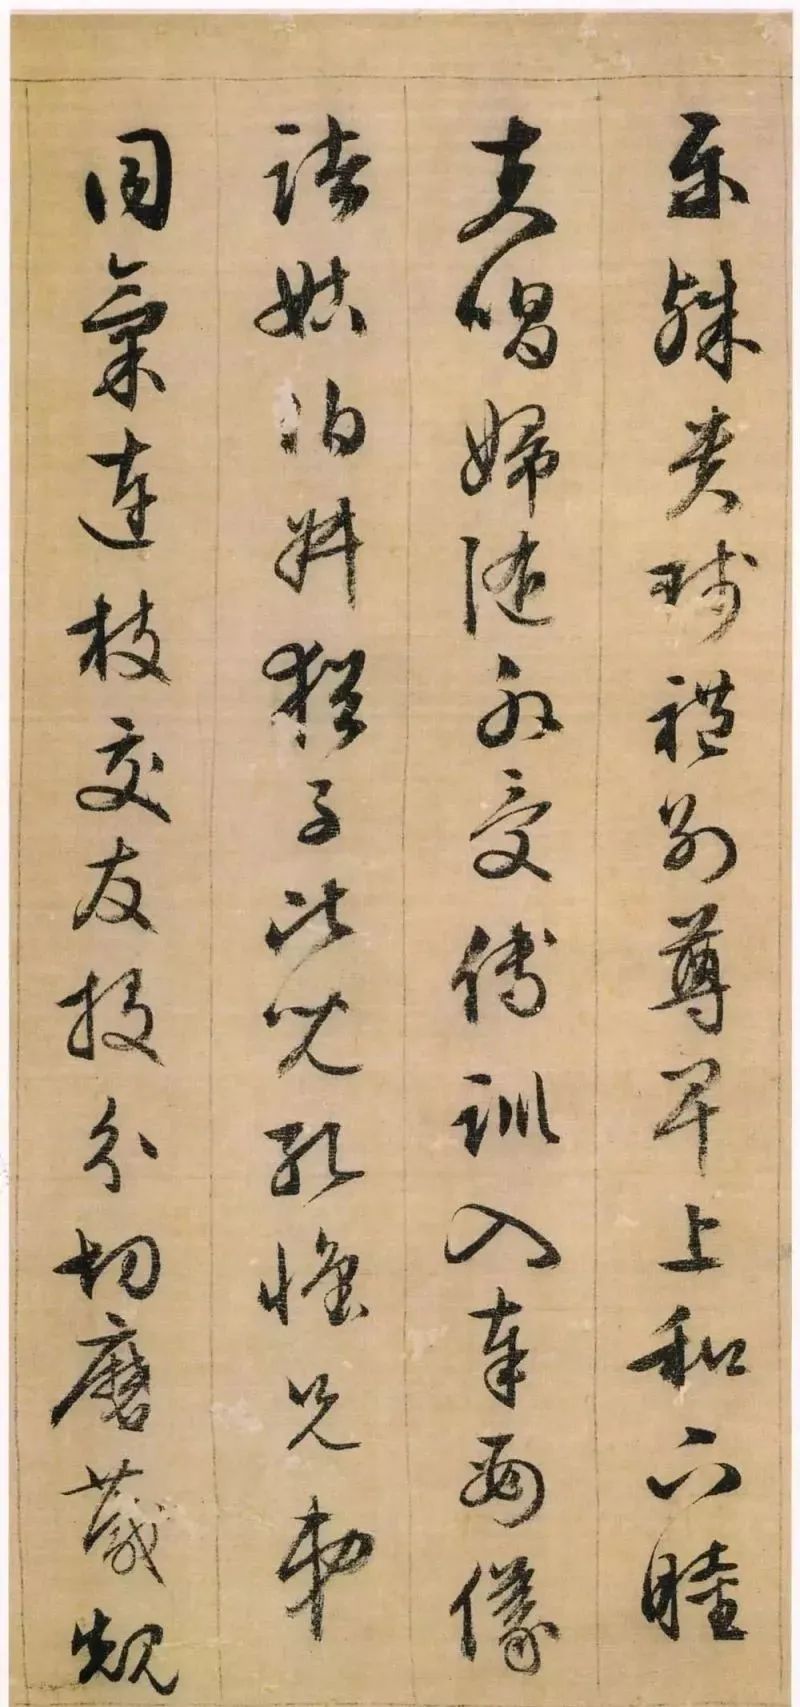 樂殊貴賤禮別尊卑上和下睦
夫唱婦隨外受傅訓入奉母儀
諸姑伯叔猶子比兒孔懷兄弟
同氣連枝交友投分切磨箴規